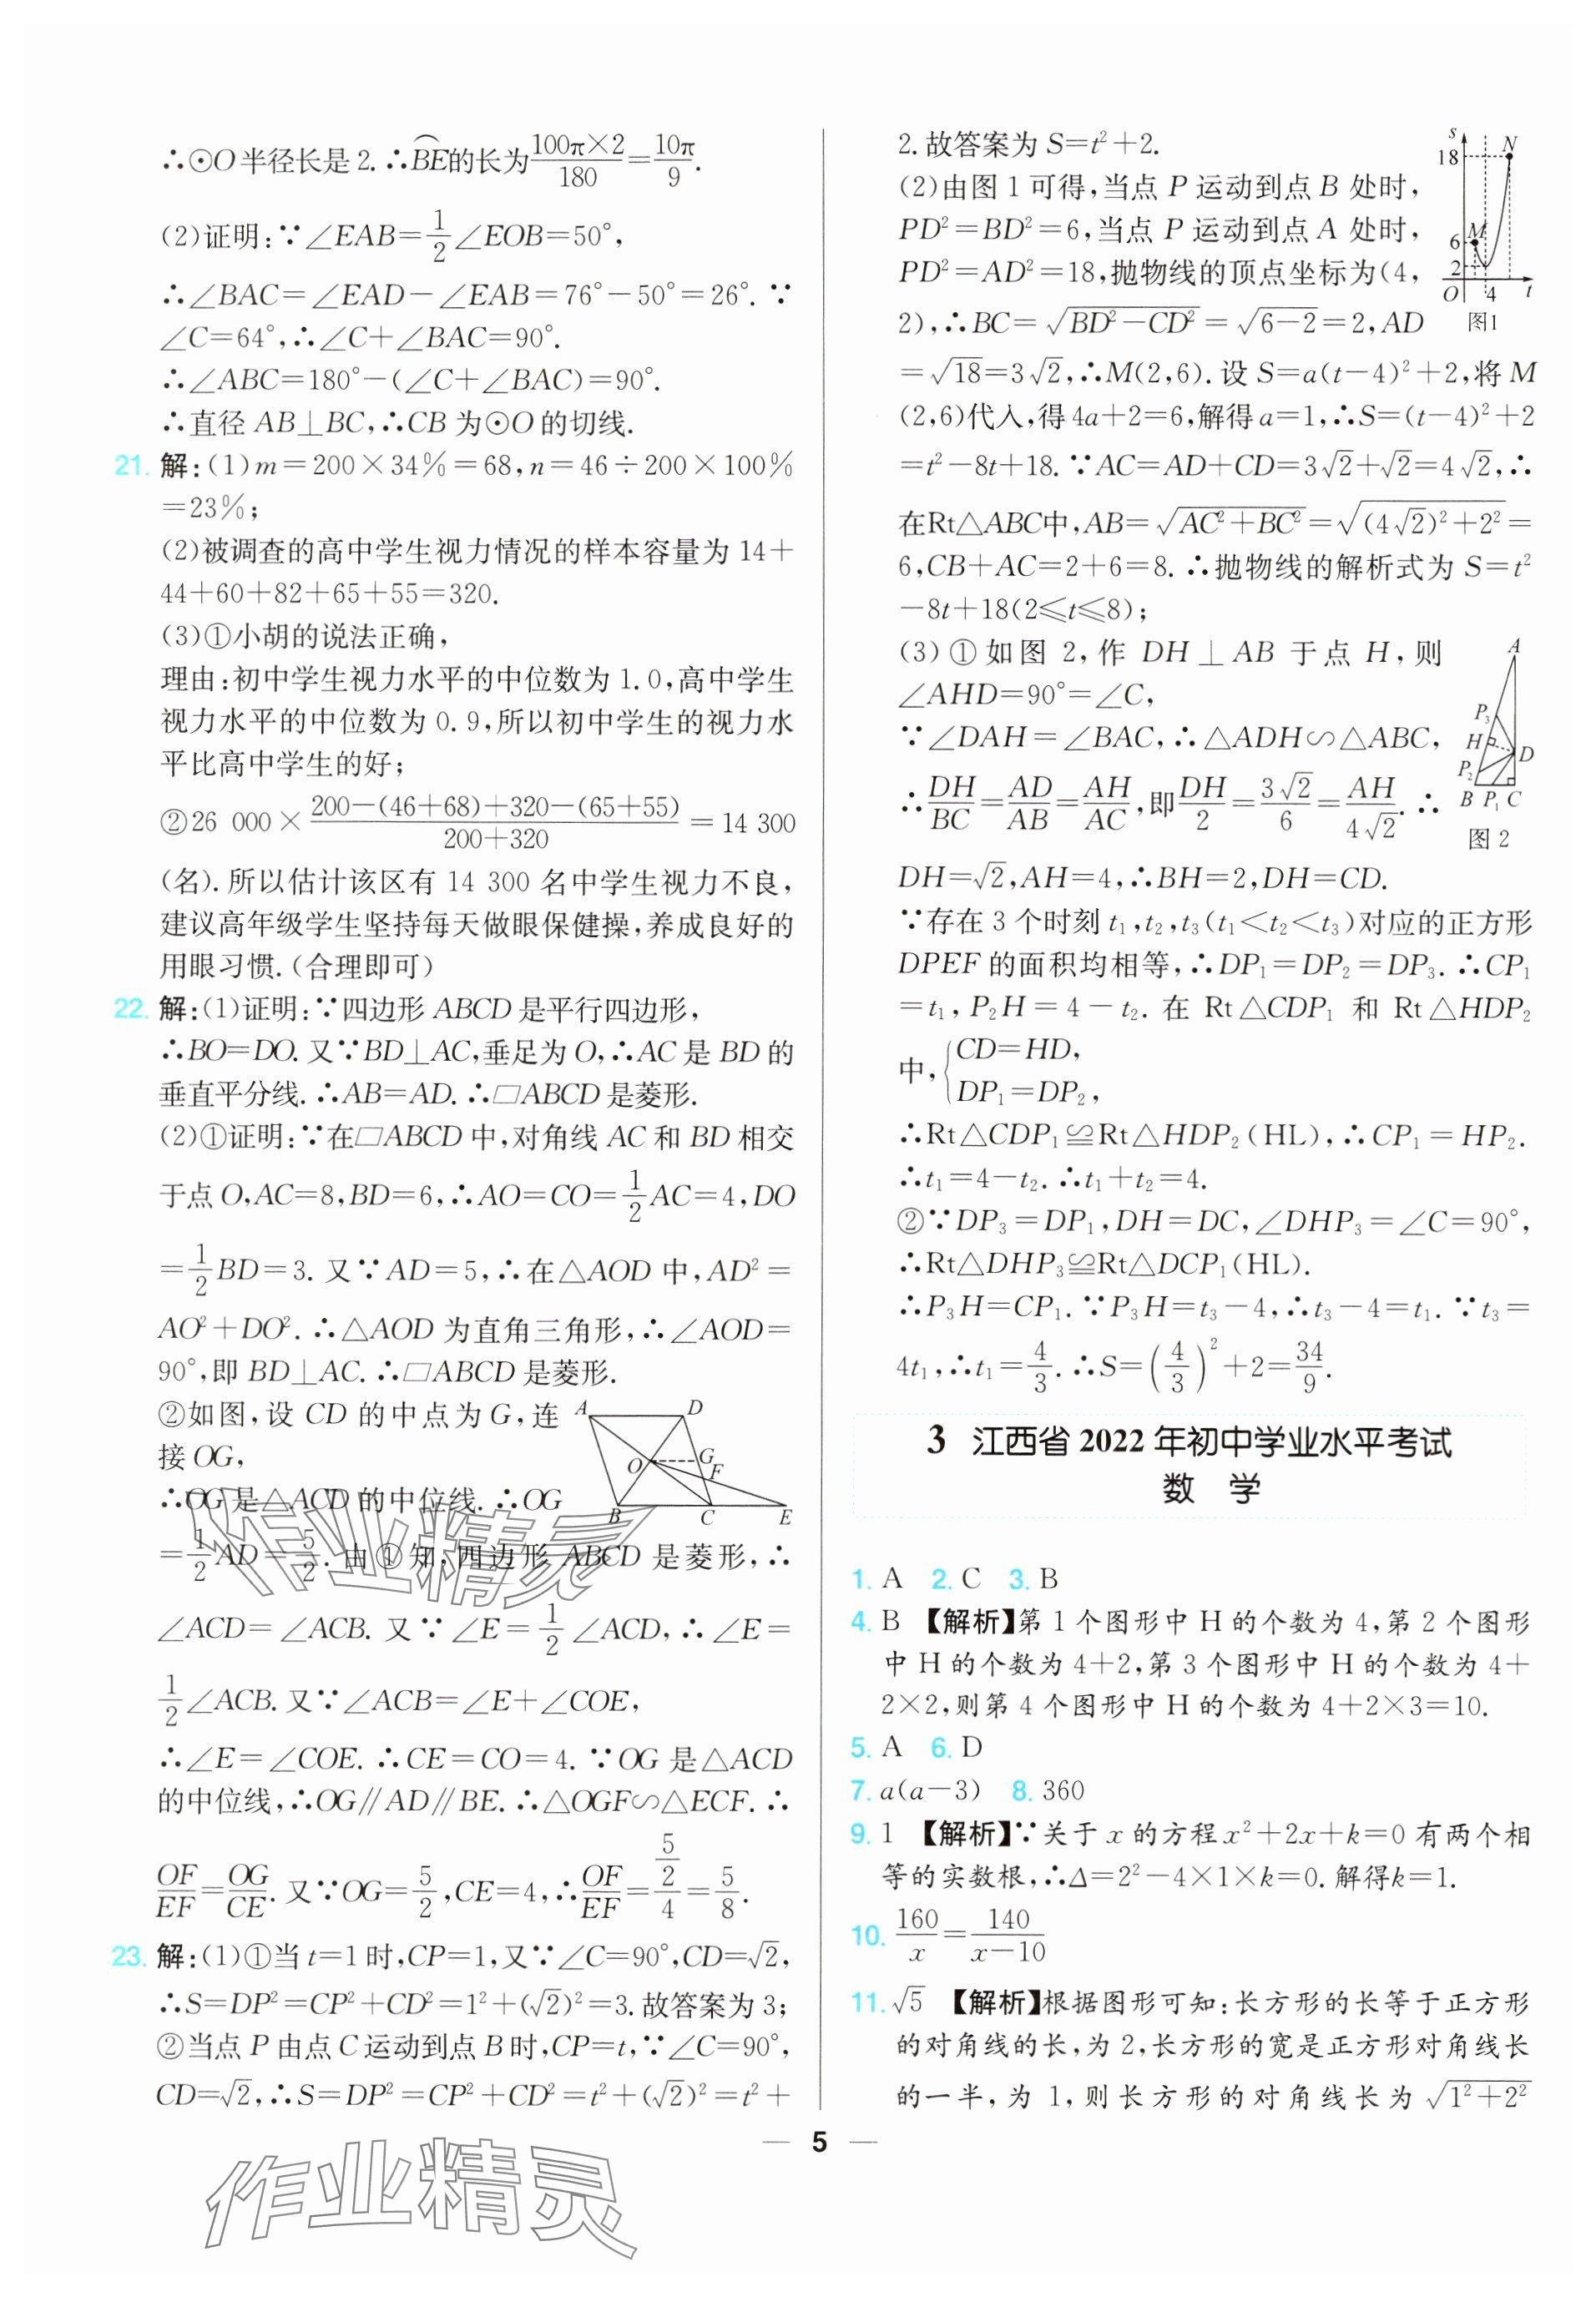 ∴⊙O 半径长是 2. ∴BE的长为100π×2/180=10π/9.
(2)证明:∵∠EAB=1/2∠EOB=50°,
∴∠BAC=∠EAD-∠EAB=76°-50°=26°. ∵
∠C=64°,∴∠C+∠BAC=90°.
∴∠ABC=180°-(∠C+∠BAC)=90°.
∴直径 AB⊥BC,∴CB 为⊙O 的切线.
21. 解:(1)m=200×34%=68,n=46÷200×100%
=23%;
(2)被调查的高中学生视力情况的样本容量为 14+
44+60+82+65+55=320.
(3)①小胡的说法正确,
理由:初中学生视力水平的中位数为 1.0,高中学生
视力水平的中位数为 0.9,所以初中学生的视力水
平比高中学生的好;
②26 000×(200-(46+68)+320-(65+55))/(200+320)=14 300
(名).所以估计该区有 14 300 名中学生视力不良,
建议高年级学生坚持每天做眼保健操,养成良好的
用眼习惯.(合理即可)
22. 解:(1)证明:∵四边形 ABCD 是平行四边形,
∴BO=DO. 又∵BD⊥AC,垂足为 O,∴AC 是 BD 的
垂直平分线. ∴AB=AD. ∴□ABCD 是菱形.
(2)①证明:∵在□ABCD 中,对角线 AC 和 BD 相交
于点 O,AC=8,BD=6,∴AO=CO=1/2AC=4,DO
=1/2BD=3. 又∵AD=5,∴在△AOD 中,AD²=
AO²+DO². ∴△AOD 为直角三角形,∴∠AOD=
90°,即 BD⊥AC. ∴□ABCD 是菱形.
②如图,设 CD 的中点为 G,连
接 OG,
∴OG 是△ACD 的中位线. ∴OG
=1/2AD=5/2. 由①知,四边形 ABCD 是菱形,∴
∠ACD=∠ACB. 又∵∠E=1/2∠ACD,∴∠E=
1/2∠ACB. 又∵∠ACB=∠E+∠COE,
∴∠E=∠COE. ∴CE=CO=4. ∵OG 是△ACD
的中位线,∴OG∥AD∥BE. ∴△OGF∽△ECF. ∴
OF/EF=OG/CE. 又∵OG=5/2,CE=4,∴OF/EF=(5/2)/4=5/8.
A D O G F B C E
23. 解:(1)①当 t=1 时,CP=1,又∵∠C=90°,CD=√2,
∴S=DP²=CP²+CD²=1²+(√2)²=3.故答案为 3;
②当点 P 由点 C 运动到点 B 时,CP=t,∵∠C=90°,
CD=√2,∴S=DP²=CP²+CD²=t²+(√2)²=t²+
2.故答案为 S=t²+2.
(2)由图 1 可得,当点 P 运动到点 B 处时,
PD²=BD²=6,当点 P 运动到点 A 处时,
PD²=AD²=18,抛物线的顶点坐标为(4,
2),∴BC=√(BD²-CD²)=√(6-2)=2,AD
=√18=3√2,∴M(2,6).设 S=a(t-4)²+2,将 M
(2,6)代入,得 4a+2=6,解得 a=1,∴S=(t-4)²+2
=t²-8t+18. ∵AC=AD+CD=3√2+√2=4√2,∴
在Rt△ABC中,AB=√(AC²+BC²)=√((4√2)²+2²)=
6,CB+AC=2+6=8. ∴抛物线的解析式为 S=t²
-8t+18(2⩽t⩽8);
s N 18 M 6 2 O 4 t
图1
(3)①如图 2,作 DH⊥AB 于点 H,则
∠AHD=90°=∠C,
∵∠DAH=∠BAC,∴△ADH∽△ABC,
∴DH/BC=AD/AB=AH/AC,即DH/2=3√2/6=AH/4√2. ∴
DH=√2,AH=4,∴BH=2,DH=CD.
A P₃ H D P₂ B P₁ C
图 2
∵存在 3 个时刻 t₁,t₂,t₃(t₁<t₂<t₃)对应的正方形
DPEF 的面积均相等,∴DP₁=DP₂=DP₃. ∴CP₁
=t₁,P₂H=4-t₂. 在 Rt△CDP₁ 和 Rt△HDP₂
中,{CD=HD,
DP₁=DP₂,
∴Rt△CDP₁≌Rt△HDP₂(HL),∴CP₁=HP₂.
∴t₁=4-t₂. ∴t₁+t₂=4.
②∵DP₃=DP₁,DH=DC,∠DHP₃=∠C=90°,
∴Rt△DHP₃≌Rt△DCP₁(HL).
∴P₃H=CP₁. ∵P₃H=t₃-4,∴t₃-4=t₁. ∵t₃=
4t₁,∴t₁=4/3. ∴S=(4/3)²+2=34/9.
3 江西省 2022 年初中学业水平考试
数 学
1. A 2. C 3. B
4. B 【解析】第 1 个图形中 H 的个数为 4,第 2 个图形
中 H 的个数为 4+2,第 3 个图形中 H 的个数为 4+
2×2,则第 4 个图形中 H 的个数为 4+2×3=10.
5. A 6. D
7. a(a-3) 8. 360
9. 1 【解析】∵关于 x 的方程 x²+2x+k=0 有两个相
等的实数根,∴Δ=2²-4×1×k=0. 解得k=1.
10. 160/x=140/(x-10)
11. √5 【解析】根据图形可知:长方形的长等于正方形
的对角线的长,为 2,长方形的宽是正方形对角线长
的一半,为 1,则长方形的对角线长为 √(1²+2²)
— 5 —
作业精灵
作业精灵